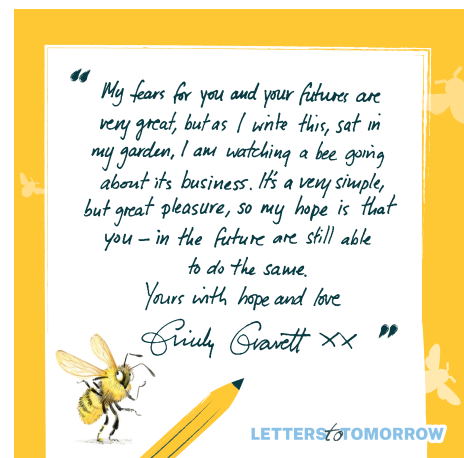 "My fears for you and your futures are
very great, but as I write this, sat in
my garden, I am watching a bee going
about its business. It's a very simple,
but great pleasure, so my hope is that
you – in the future are still able
to do the same.
Yours with hope and love
Emily Gravett xx"
LETTERS to TOMORROW